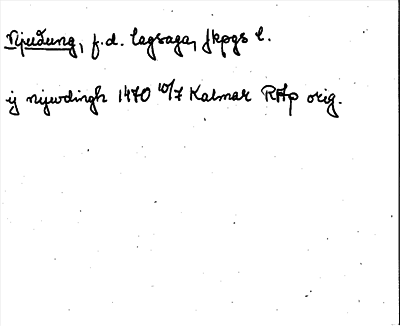 Njudung, f.d. lagsaga, Jkpgs l.
ij nijwdingh 1470 10/7 Kalmar RAp orig.